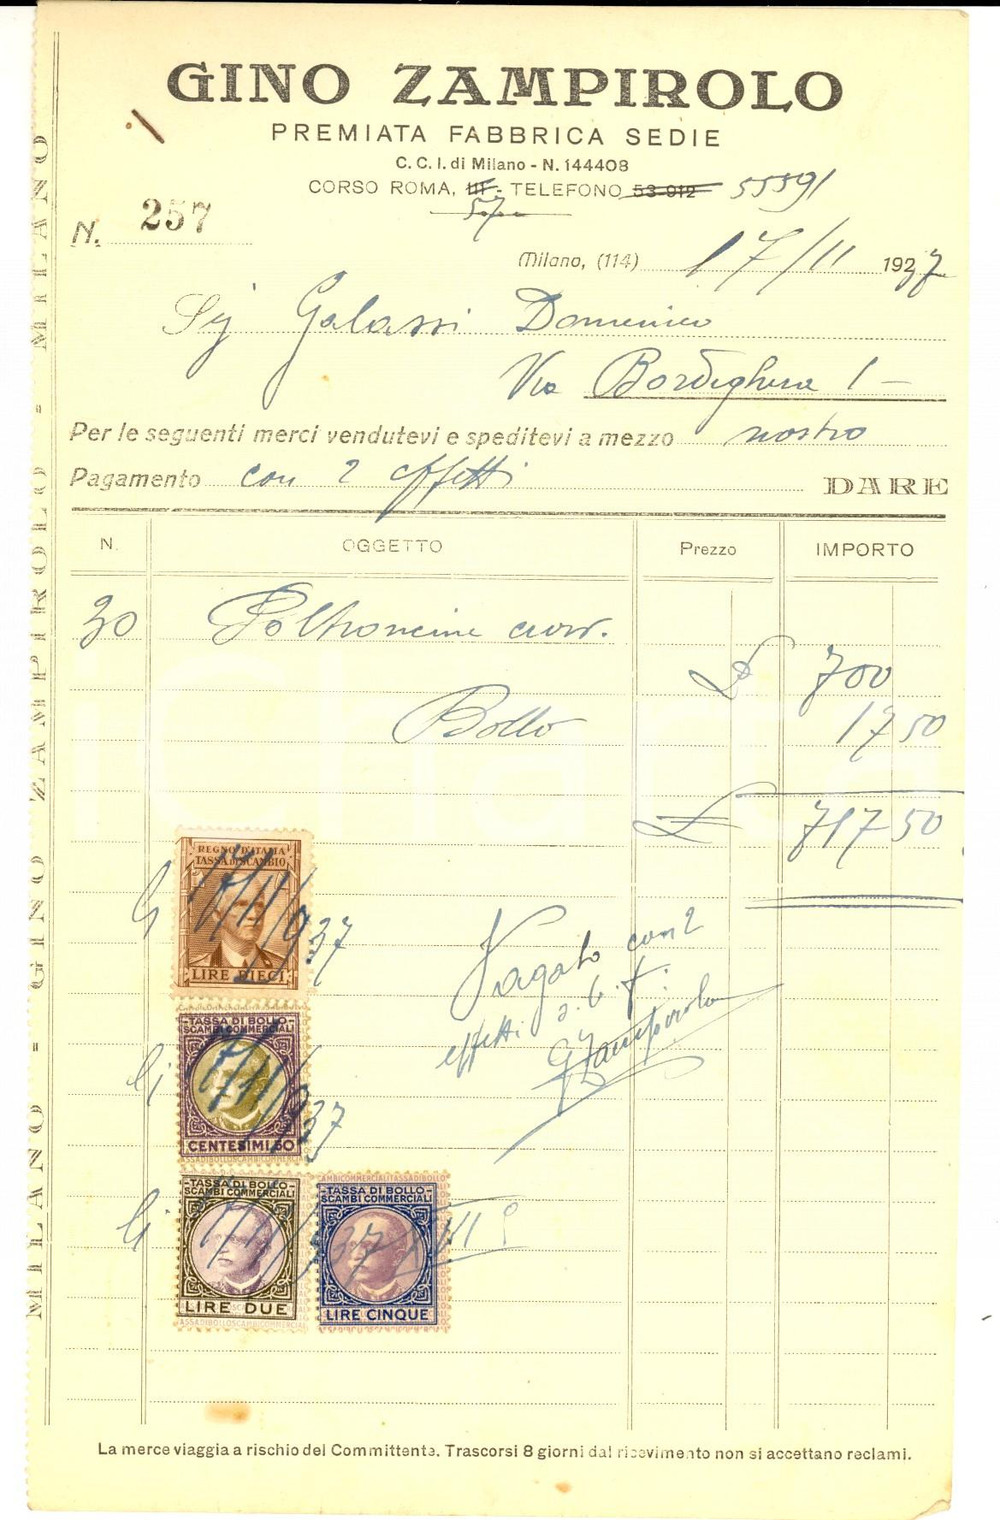 GINO ZAMPIROLO
PREMIATA FABBRICA SEDIE
C. C. I. di Milano - N. 144408
CORSO ROMA, 111 - TELEFONO 53-912 55591
57
N. 257
Milano, (114) 17/11 1937
Sig Galassi Domenico
Via Bordighera 1 -
Per le seguenti merci vendutevi e speditevi a mezzo nostro
Pagamento con 2 effetti DARE
N. OGGETTO Prezzo IMPORTO
30 Poltroncine
£ 700
Bollo 17 50
£ 717 50
REGNO D'ITALIA
TASSA DI SCAMBIO
LIRE DIECI
17/11/937
Pagato con 2
effetti a. b. f.
GZampirolo
TASSA DI BOLLO
SCAMBI COMMERCIALI
CENTESIMI 50
17/11/937
TASSA DI BOLLO
SCAMBI COMMERCIALI
LIRE DUE
TASSA DI BOLLO
SCAMBI COMMERCIALI
LIRE CINQUE
17/11/937 XVI°
La merce viaggia a rischio del Committente. Trascorsi 8 giorni dal ricevimento non si accettano reclami.
MILANO - GINO ZAMPIROLO - MILANO